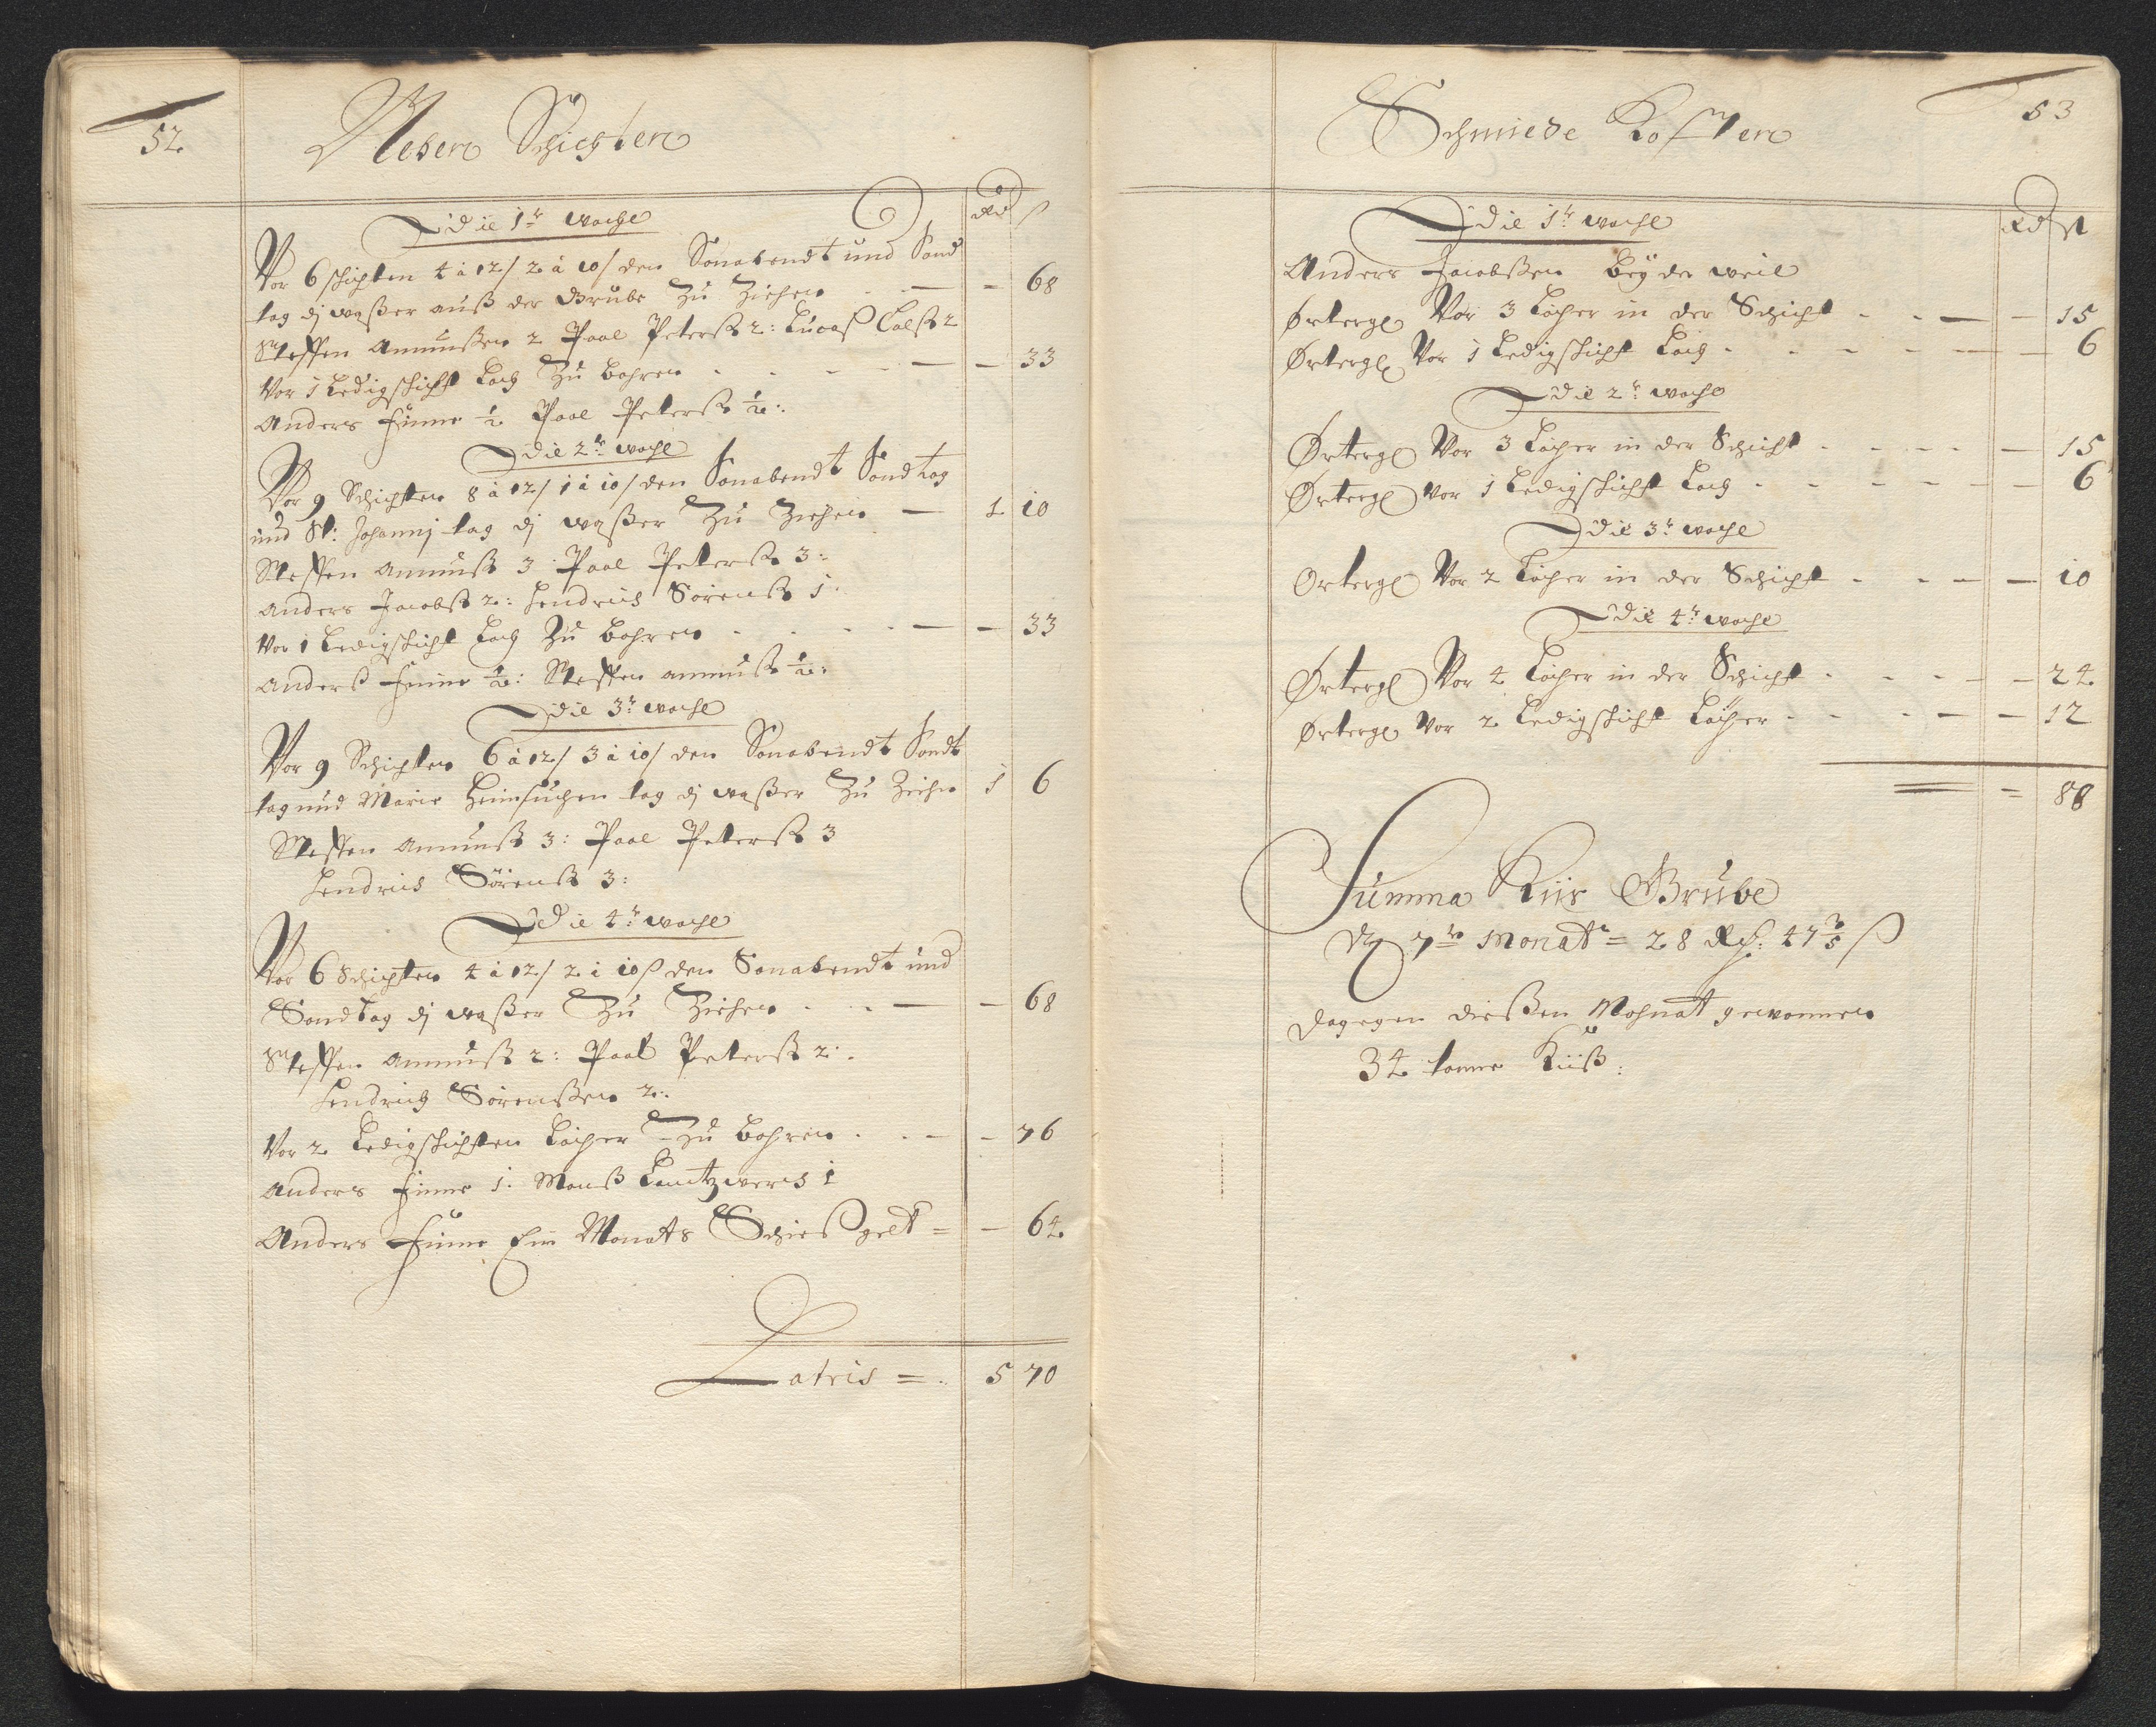 52.
Neben Schichten
Rd ß
Die 1te woche
Vor 6 schichten 4 à 12/ 2 à 10/ den Sonabendt und Sond
tag dz waßer auß der Grube Zu Ziehen - - 68
Steffen Amunßen 2 Paal Peterß 2: Lucaß Calß 2
Vor 1 Ledigschicht Loch Zu bohren - - - - - 33
Anders Finne ½ Paal Peterß ½:
Die 2te woche
Vor 9 Schichten 8 à 12/ 1 à 10/ den Sonabendt Sondtag
und St: Johannj tag dz waßer Zu Ziehen - 1 10
Steffen Amunß 3 Paal Peterß 3:
Anders Jacobß 2: Hendrich Sörenß 1:
Vor 1 Ledigschicht Loch Zu bohren - - - - - 33
Anderß Finne ½: Steffen Amunß ½:
Die 3te woche
Vor 9 Schichten 6 à 12/ 3 à 10/ den Sonabendt Sondt
tag und Marie Heimsuchen tag dz waßer Zu Ziehn 1 6
Steffen Amunß 3: Paal Peterß 3
Hendrich Sörenß 3:
Die 4te woche
Vor 6 Schichten 4 à 12/ 2 à 10 ß den Sonabendt und
Sondtag dz waßer Zu Ziehen - - - - 68
Steffen Amunß 2: Paal Peterß 2:
Hendrich Sörenßen 2:
Vor 2 Ledigschichten Löcher Zu bohren - - - - 76
Anders Finne 1: Monß Lantzwerch 1
Anders Finne Ein Monats Schießgelt = - 64
Latris = 5 70
53
Schmiede Kosten
Rd ß
Die 1te woche
Anders Jacobßen bey der weil
Örtergl Vor 3 Löcher in der Schicht - - - - 15
Örtergl Vor 1 Ledigschicht Loch - - - - - 6
Die 2te woche
Örtergl Vor 3 Löcher in der Schicht - - - - - 15
Örtergl vor 1 Ledigschicht Loch - - - - - - 6
Die 3te woche
Ortergl Vor 2 Löcher in der Schicht - - - - 10
Die 4te woche
Örtergl Vor 4 Löcher in der Schicht - - - - - 24
Örtergl Vor 2 Ledigschicht Löcher - - - - - 12
= 88
Summa Kiis Grube
7te Monat = 28 Rd: 47 3/5 ß
dagegen dießen Mohnat gewonnen
34 tonne Kiiß: